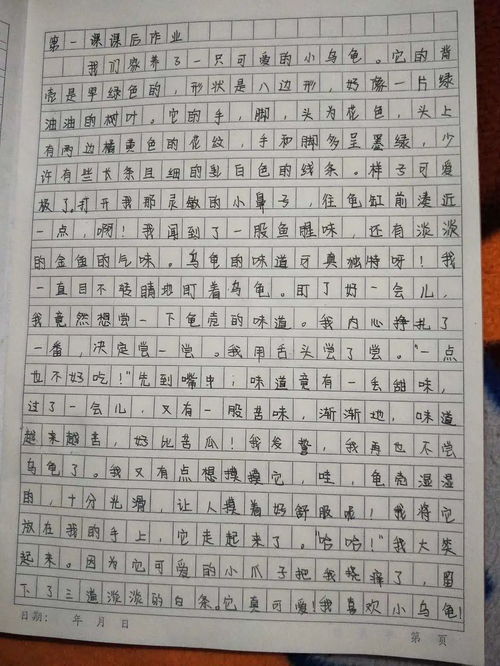 第一课课后作业
我们家养了一只可爱的小乌龟。它的背
壳是翠绿色的，形状是八边形，好像一片绿
油油的树叶。它的手，脚，头为花色，头上
有两边橘黄色的花纹，手和脚多呈墨绿，少
许有些长条且细的乳白色的线条。样子可爱
极了。打开我那灵敏的小鼻子，往龟缸前凑近
一点，啊！我闻到了一股鱼腥味，还有淡淡
的金鱼的气味。乌龟的味道可真独特呀！我
一直目不转睛地盯着乌龟。盯了好一会儿，
我竟然想尝一下龟壳的味道。我内心挣扎了
一番，决定尝一尝。我用舌头尝了尝。“一点
也不好吃！”先到嘴中；味道竟有一丢甜味，
过了一会儿，又有一股苦味，渐渐地，味道
越来越苦，好比苦瓜！我发誓，我再也不尝
乌龟了。我又有点想摸摸它，哇，龟壳湿湿
的，十分光滑，让人摸着好舒服啦！我将它
放在我的手上，它走起来了。“哈哈！”我大笑
起来。因为它可爱的小爪子把我挠痒了，留
下了三道淡淡的白条。它真可爱！我喜欢小乌龟！
日期： 年 月 日
第 页